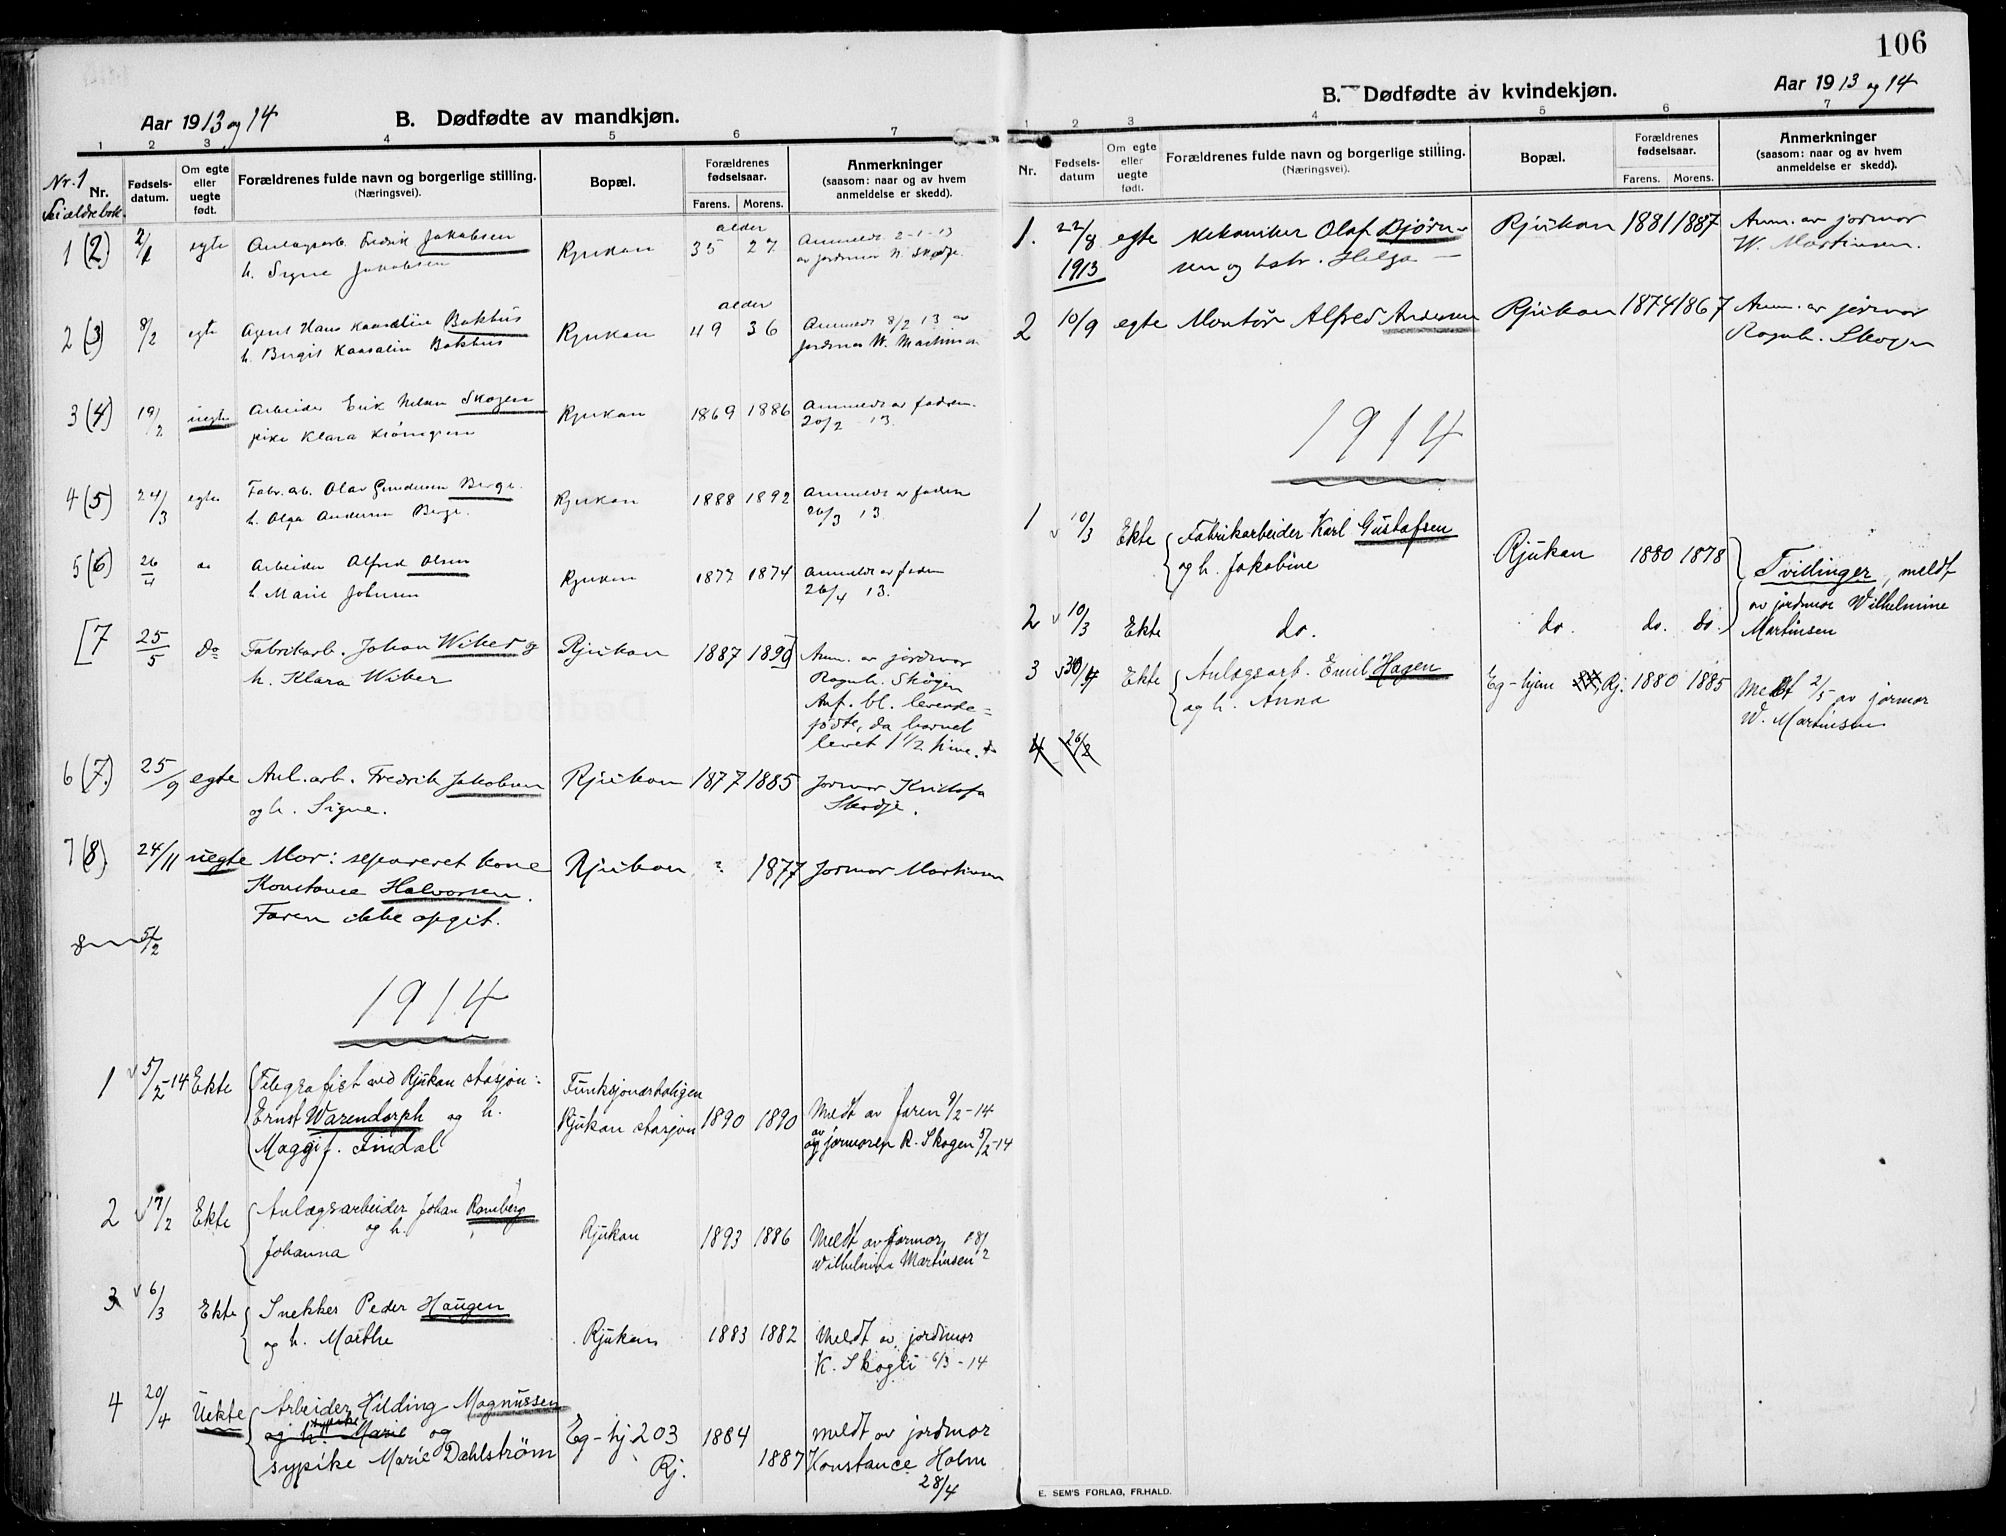 106
Aar 1913 og 14
B. Dødfødte av mandkjøn.
1 2 3 4 5 6 7
Nr. 1
Nr.
Se ældre bok.
Fødsels-
datum.
Om egte
eller
uegte
født.
Forældrenes fulde navn og borgerlige stilling.
(Næringsvei).
Bopæl.
Forældrenes
fødselsaar.
Farens. Morens.
Anmerkninger
(saasom: naar og av hvem
anmeldelse er skedd).
alder
1 (2) 2/1 egte Anlægsarb. Fredrik Jakobsen Rjukan 35 27 Anmeldt 2-1-13
h. Signe Jakobsen av jordmor K. Skodje.
alder
2 (3) 8/2 egte Agent Hans Bakhus Rjukan 49 36 Anmeldt 8/2 13 av
h. Birgit Bakhus jordmor W. Martinsen
3 (4) 19/2 uegte Arbeider Erik Nelsen Skogen Rjukan 1869 1886 Anmeldt av faderen
pike Klara 20/2 13.
4 (5) 24/3 egte Fabr. arb. Olav Gundersen Berge. Rjukan 1888 1892 Anmeldt av faderen
h. Olga Andersen Berge. 26/3 13.
5 (6) 26/4 do Arbeider Alfred Olsen Rjukan 1877 1874 Anmeldt av faderen
h. Marie Johnsen 26/4 13.
[7 25/5 Do Fabrikarb. Johan Wiber og Rjukan 1887 1890] Anm. av jordmor
h. Klara Wiber Ragnh. Skogen
Anf. bl. levende=
fødte, da barnet
levet 1 1/2 time.
6 (7) 25/9 egte Anl. arb. Fredrik Jakobsen Rjukan 1877 1885 Jormor Kristofa
og h. Signe. Skodje.
7 (8) 24/11 uegte Mor: separeret kone Rjukan ? 1877 Jormor Martinsen
Konstance Halvorsen.
Faren ikke opgit.
8 5/2
1914
1 5/2-14 Ekte Telegrafist ved Rjukan stasjon: Funksjonærboligen
Ernst Warendorph og h. Rjukan stasjon 1890 1890 Meldt av faren 9/2-14
Maggi f. Findal og av jormoren R. Skogen 5/2-14
2 17/2 Ekte Anlægsarbeider Johan Ramberg
og h. Rjukan 1893 1886 Meldt av jormor 18/2
Johanna Wilhelmine Martinsen
3 6/3 Ekte Snekker Peder Haugen
og h. Marthe Rjukan 1883 1882 Meldt av jordmor
K. Skogli 6/3-14
4 20/4 Uekte Arbeider Hilding Magnussen
og h. Marie og Eg-hj. 203 1884 meldt av jordmor
sypike Marie Dahlstrøm Rj. 1887 Konstance Holm
28/4
Aar 1913 og 14
B. Dødfødte av kvindekjøn.
1 2 3 4 5 6 7
Nr.
Fødsels-
datum
Om egte
eller
uegte
født.
Forældrenes fulde navn og borgerlige stilling.
(Næringsvei).
Bopæl.
Forældrenes
fødselsaar.
Farens. Morens.
Anmerkninger
(saasom: naar og av hvem
anmeldelse er skedd).
1. 22/8 egte Mekaniker Olaf Bjørn- Rjukan 1881 1887 Anm. av jormor
1913 sen og hstr. Helga W. Martinsen.
2 10/9 egte Montør Alfred Andersen Rjukan 1874 1867 Anm. av jormor
Ragnh. Skogen
1914
1 10/3 Ekte Fabrikarbeider Karl Gustafsen
og h. Jakobine Rjukan 1880 1878 Tvillinger, meldt
av jordmor Wilhelmine
2 10/3 Ekte do. do. do. do. Martinsen
3 30/4 Ekte Anlægsarb. Emil Hagen Eg-hjem Rj. 1880 1885 Meldt 2/5 av jormor
og h. Anna W. Martinsen
4 26/2
E. SEM'S FORLAG, FR.HALD.